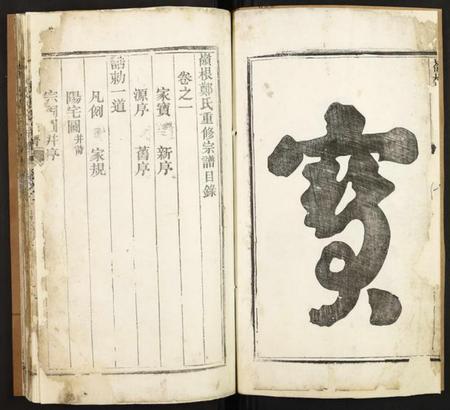 寳
嶺根鄭氏重修宗譜目錄
卷之一
家寶 新序
源序 舊序
誥勅一道
凡例 家規
陽宅圖并